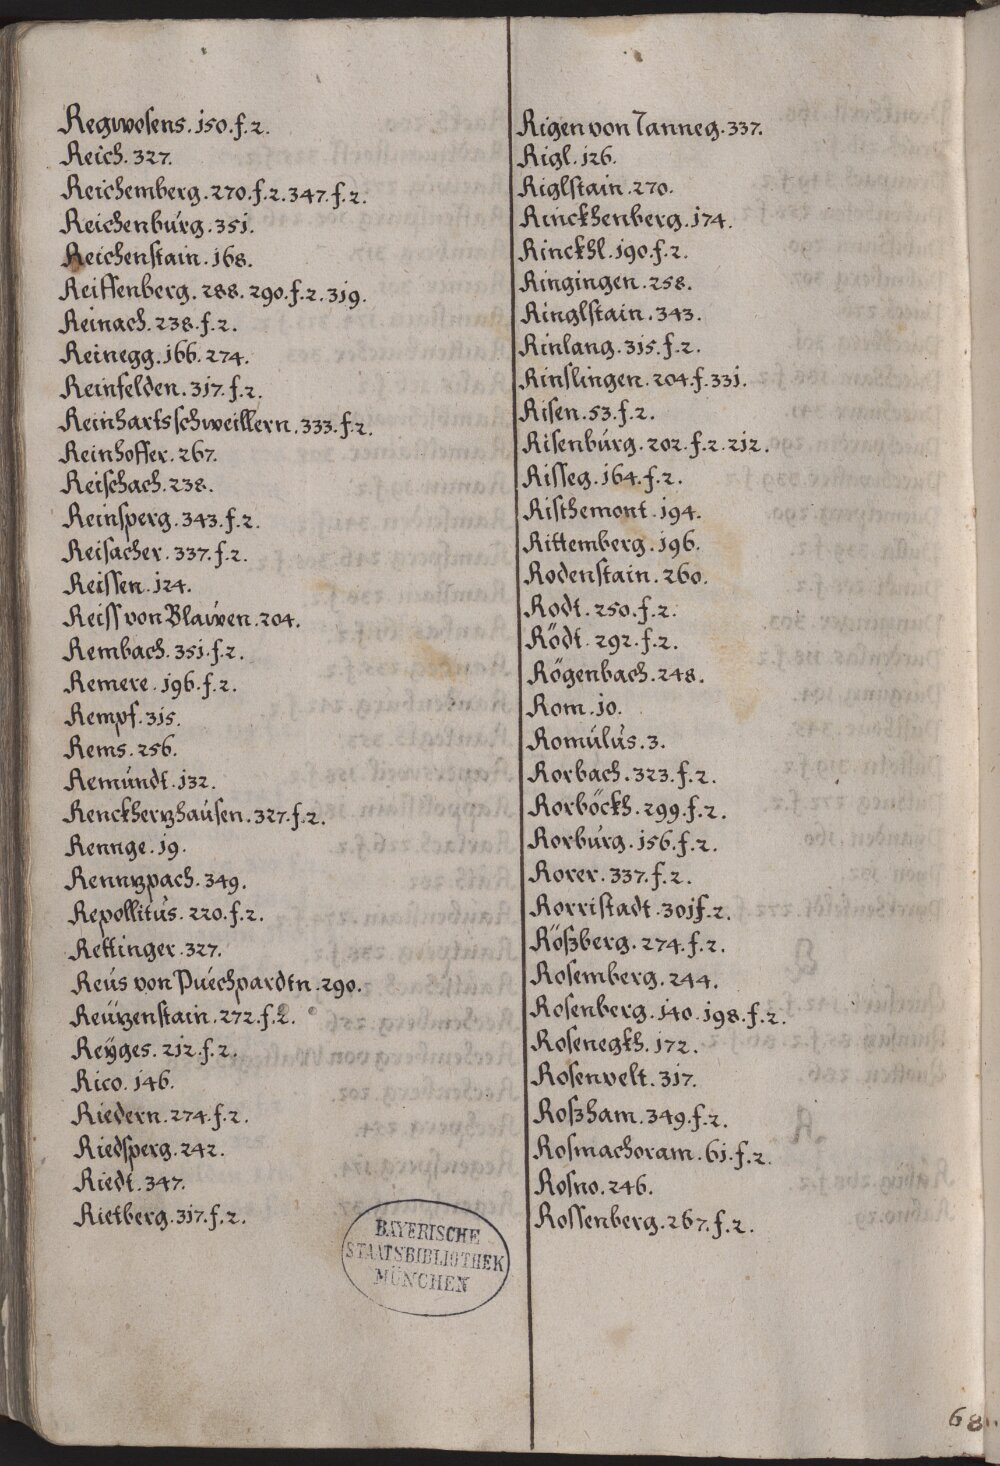 Regwosens. 150. f. 2.
Reich. 327.
Reichemberg. 270. f. 2. 347. f. 2.
Reichenburg. 351.
Reichenstain. 168.
Reiffenberg. 288. 290. f. 2. 319.
Reinach. 238. f. 2.
Reinegg. 166. 274.
Reinfelden. 317. f. 2.
Reinhartsschweillern. 333. f. 2.
Reinhoffer. 267.
Reischach. 238.
Reinsperg. 343. f. 2.
Reisacher. 337. f. 2.
Reissen. 124.
Reiss von Blawen. 204.
Rembach. 351. f. 2.
Remere. 196. f. 2.
Rempf. 315.
Rems. 256.
Remundt. 132.
Renckherzhausen. 327. f. 2.
Rennge. 19.
Rennzpach. 349.
Repollitus. 220. f. 2.
Rettinger. 327.
Reus von Puechpardtn. 290.
Reützenstain. 272. f. 2.
Reÿges. 212. f. 2.
Rico. 146.
Riedern. 274. f. 2.
Riedsperg. 242.
Riedt. 347.
Rietberg. 317. f. 2.
Rigen von Tanneg. 337.
Rigl. 126.
Riglstain. 270.
Rinckhenberg. 174.
Rinckhl. 190. f. 2.
Ringingen. 258.
Ringlstain. 343.
Rinlang. 315. f. 2.
Rinslingen. 204. f. 331.
Risen. 53. f. 2.
Risenburg. 202. f. 2. 212.
Risseg. 164. f. 2.
Risthemont. 194.
Rittemberg. 196.
Rodenstain. 260.
Rodt. 250. f. 2.
Rödt. 292. f. 2.
Rögenbach. 248.
Rom. 10.
Romulus. 3.
Rorbach. 323. f. 2.
Rorböckh. 299. f. 2.
Rorburg. 156. f. 2.
Rorer. 337. f. 2.
Rorristadt. 301 f. 2.
Rößberg. 274. f. 2.
Rosemberg. 244.
Rosenberg. 140. 198. f. 2.
Rosenegkh. 172.
Rosenvelt. 317.
Roßham. 349. f. 2.
Rosmachoram. 61. f. 2.
Rosno. 246.
Rossenberg. 267. f. 2.
BAYERISCHE
STAATSBIBLIOTHEK
MÜNCHEN